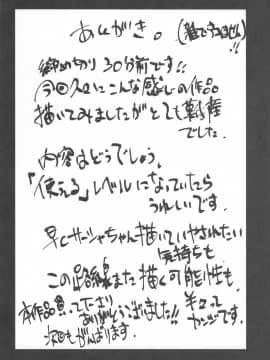 あとがき。(雑ですみません)!!
締めきり30分前です!!
今回久々にこんな感じの作品
描いてみましたがとても新鮮
でした。
内容はどうでしょう。
「使える」レベルになっていたら
うれしいです。
早くサーシャちゃん描いていやされたい
気持ちも
この路線また描く可能性も
半々って
カンジです。
本作品買って下さり
ありがとうございました!!
次回もがんばります。